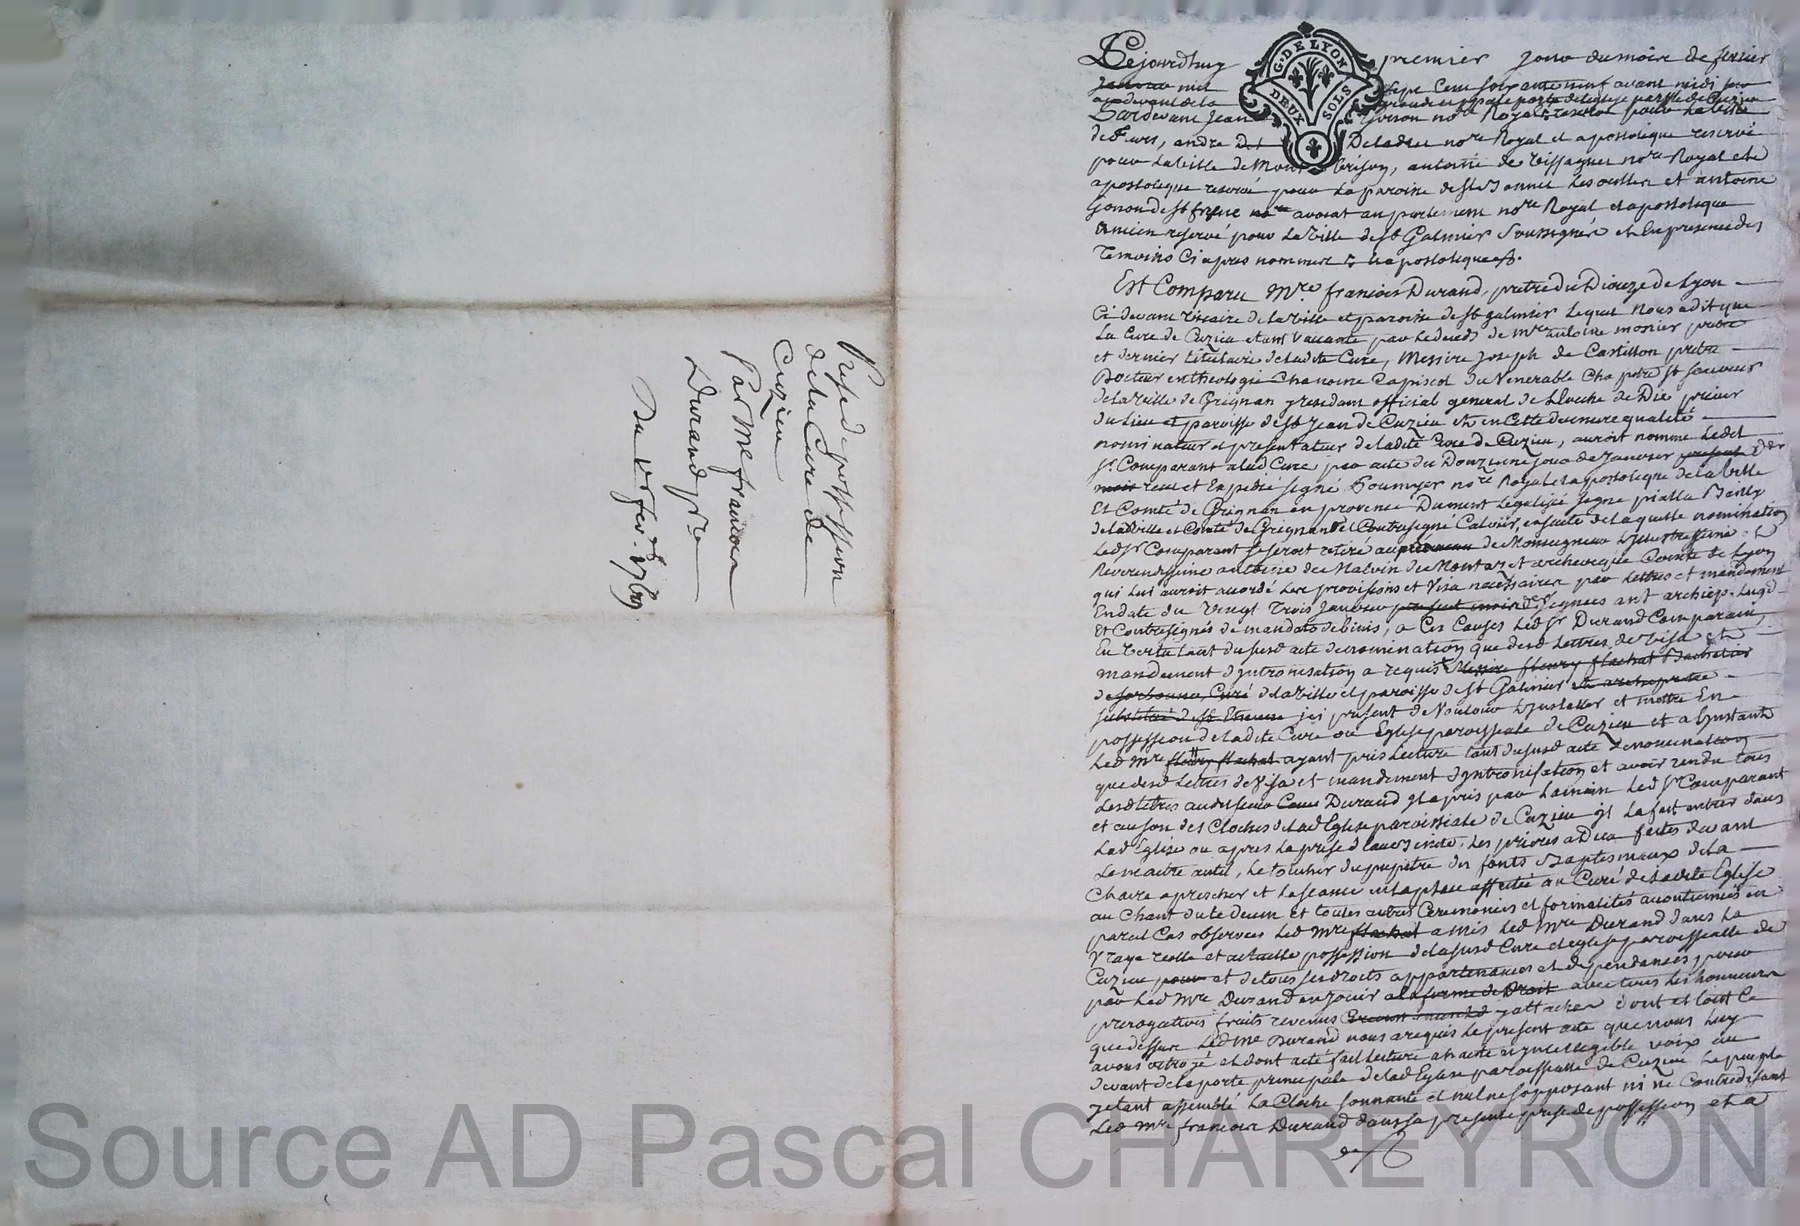 Prise de possession
de la Cure de
Cuzieu
Par Me francois
Durand ptre
Du 1er fevr. 1769
G. DE LYON
DEUX SOLS
Cejourdhuy premier jour du mois de fevrier
janvier mil sept cent soixante neuf avant midi
au devant de la grande et principale porte de leglise parlle de Cuzieu
Pardevant Jean notre Royal
de Feurs, andre Deladret notre Royal et apostolique reservé
pour la ville de Montbrison, antoine de Vissaguet notre Royal et
apostolique reservé pour la paroisse de St Bonnet Les oulles et antoine
Gonon de St fresne avocat au parlement notre Royal et apostolique
ancien reservé pour la ville de St Galmier soussignés et En presence des
Temoins Ci apres nommés
Est Comparu Mre francois Durand, prêtre du Dioceze de Lyon
Ci devant vicaire de la ville et paroisse de St galmier Lequel Nous a dit que
La Cure de Cuzieu etant Vaccante par le deceds de Mre antoine monier pretre
et dernier titulaire de ladite Cure, Messire Joseph de Castillon pretre
Docteur en theologie Chanoine Capiscol du Venerable Chapitre St Sauveur
de la ville de Grignan president official general de Dioceze de Die prieur
du Lieu et paroisse de St Jean de Cuzieu et En Cette derniere qualité
nominateur et presentateur de ladite Cure de Cuzieu, auroit nommé Ledit
Sr Comparant alad Cure par acte du Douzieme jour de Janvier present der
mois recu et Expedié signé Fournyer notre Royal et apostolique de la ville
Et Comté de Grignan en provence Dument legalisé signé pialla Bailly
de la ville et Comté de Grignan et Contresigné Calvier, ensuite de laquelle nomination
Led Sr Comparant se seroit retiré de Monseigneur Lillustrissime et
Reverendissime antoine de Malvin de Montazet archeveque Comte de Lyon
qui lui auroit accordé Les provisions et Visa necessaires par lettres et mandement
En date du Vingt Trois Janvier present mois signées ant archiep. Lugd.
Et Contresignés de mandato debinis, a Ces Causes Led Sr Durand Comparant,
En Vertu tant du susd acte de nomination que desd Lettres de Visa et
mandement d'intronisation a requis Messire fleury flachat Bachelier
de Sorbonne, Curé de la ville et paroisse de St Galmier et archiprêtre
substitué de St Etienne ici present de Vouloir L'installer et mettre En
possession de ladite Cure ou Eglise paroissiale de Cuzieu et a l'instant
Led Mre fleury flachat ayant pris Lecture tant du susd acte de nomination
que desd Lettres de Visa et mandement d'intronisation et avoir rendu tous
Lesd titres audit sieur Durand Il a pris par La main Led Sr Comparant
et au son des Cloches de lad Eglise paroissiale de Cuzieu Il La fait entrer dans
Lad Eglise ou apres la prise d'eau benite, Les prieres a Dieu faites devant
Le maitre autel, Le toucher du pupitre des fonts Baptismaux de la
Chaire a prescher et la seance en la place affectée au Curé de ladite Eglise
au Chant du te deum et toutes autres Ceremonies et formalités accoutumées en
pareil Cas observées Led Mre flachat a mis Led Mre Durand dans La
Vraye reelle et actuelle possession de la susd Cure et eglise paroissialle de
Cuzieu pour et de tous ses droits appartenances et dependances pour
par Led Mre Durand en jouir a la forme de Droit avec tous les honneurs
prerogatives fruits revenus y attachés dont et tout Ce
que dessus Led Me Durand nous a requis Le present acte que nous Luy
avons octroyé et dont acté fait lecture a haute et Intelligible voix au
devant de la porte principale de lad Eglise paroissialle de Cuzieu Le peuple
y etant assemblé La Cloche sonnante et nul ne s'opposant ni ne Contredisant
Led Mre francois Durand dans sa presente prise de possession et a
Source AD Pascal CHAREYRON